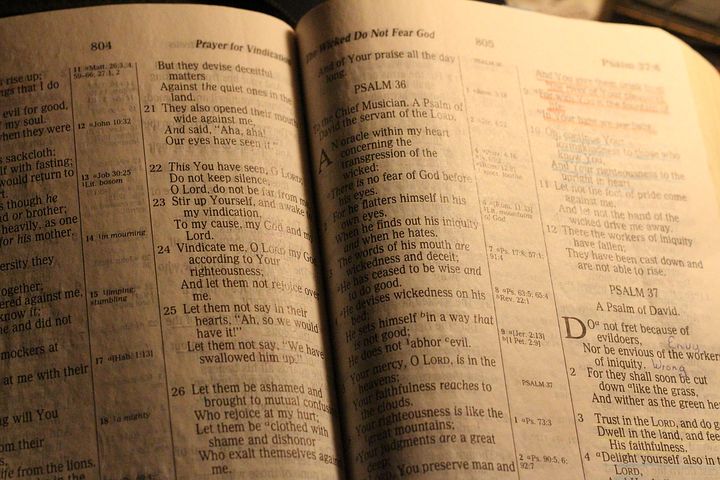 804
Prayer for Vindication
rise up;
ngs that I do
evil for good,
my soul.
when they were
sackcloth:
self with fasting;
would return to
s though he
d or brother;
heavily, as one
for his mother.
versity they
together;
ered against me,
know it;
me and did not
mockers at
at me with their
ng will You
om their
life from the lions.
11 Matt. 26:3, 4,
59–66; 27:1, 2
12 John 10:32
13 Job 30:25
Lit. bosom
14 in mourning
15 limping,
stumbling
17 [Hab. 1:13]
18 a mighty
But they devise deceitful
matters
Against the quiet ones in the
land.
21 They also opened their mouth
wide against me,
And said, "Aha, aha!
Our eyes have seen it."
22 This You have seen, O LORD;
Do not keep silence.
O Lord, do not be far from me
23 Stir up Yourself, and awake
my vindication,
To my cause, my God and my
Lord.
24 Vindicate me, O LORD my God
according to Your
righteousness;
And let them not rejoice over
me.
25 Let them not say in their
hearts, "Ah, so we would
have it!"
Let them not say, "We have
swallowed him up."
26 Let them be ashamed and
brought to mutual confus
Who rejoice at my hurt;
Let them be clothed with
shame and dishonor
Who exalt themselves aga
me.
The Wicked Do Not Fear God
805
Psalm 37:4
And of Your praise all the day
long.
PSALM 36
To the Chief Musician. A Psalm of
David the servant of the LORD.
AN oracle within my heart
concerning the
transgression of the
wicked:
There is no fear of God before
his eyes.
For he flatters himself in his
own eyes,
When he finds out his iniquity
and when he hates.
The words of his mouth are
wickedness and deceit;
He has ceased to be wise and
to do good.
He devises wickedness on his
bed;
He sets himself in a way that
is not good;
He does not abhor evil.
Your mercy, O LORD, is in the
heavens;
Your faithfulness reaches to
the clouds.
Your righteousness is like the
great mountains;
Your judgments are a great
deep;
LORD, You preserve man and
7 Ps. 17:8; 57:1;
91:4
8 Ps. 63:5; 65:4
Rev. 22:1
9 [Jer. 2:13]
[1 Pet. 2:9]
PSALM 37
1 Ps. 73:3
2 Ps. 90:5, 6;
92:7
11 Let not the foot of pride come
against me,
And let not the hand of the
wicked drive me away.
12 There the workers of iniquity
have fallen;
They have been cast down and
are not able to rise.
PSALM 37
A Psalm of David.
DO not fret because of
evildoers,
Envy
Nor be envious of the workers
of iniquity.
Wrong
2 For they shall soon be cut
down like the grass,
And wither as the green he
3 Trust in the LORD, and do g
Dwell in the land, and fee
His faithfulness.
4 Delight yourself also in t
LORD,